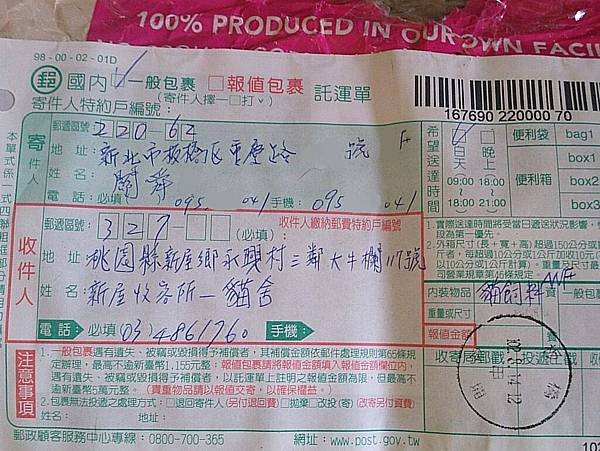 100% PRODUCED IN OUR OWN FACI
98-00-02-01D
郵 國內 □一般包裹 □報值包裹 託運單
(寄件人擇一□打ˇ)
寄件人特約戶編號:
167690 220000 70
寄件人
郵遞區號: 220-62
地址: 新北市板橋區重慶路 號 F
姓名:
電話: 必填 095 041 手機: 095 041
希望送達時間
□白天 09:00 18:00
□晚上 18:00 21:00
便利袋 bag1
便利箱 box1
box2
box3
收件人
郵遞區號: 327-□□ (必填) 收件人繳納郵費特約戶編號
地址: 桃園縣新屋鄉永興村三鄰大牛欄117號
姓名: 新屋收容所-貓舍
電話: 必填 (03)4861760 手機:
1.實際送達時間將受當日遞送狀況影響,
段為第一優先。
2.外箱尺寸(長+寬+高)超過150公分
內裝物品 貓飼料
重量或尺寸
報值金額
收寄局郵戳 投遞
注意事項
1.一般包裹遇有遺失、被竊或毀損得予補償者,其補償金額依郵件處理規則第65條規
定辦理,最高不逾新臺幣1,155元整。報值包裹請將報值金額填入報值金額欄位內,
遇有遺失、被竊或毀損得予補償者,以託運單上註明之報值金額為限,但最高不
逾新臺幣5萬元整。(貴重物品請以報值交寄,以確保權益。)
2.包裹無法投遞之處理方式:□退回寄件人(另付退回費) □拋棄 □改投(寄)(改寄另付資費)
姓名: 地址:
郵政顧客服務中心專線:0800-700-365 網址:www.post.gov.tw